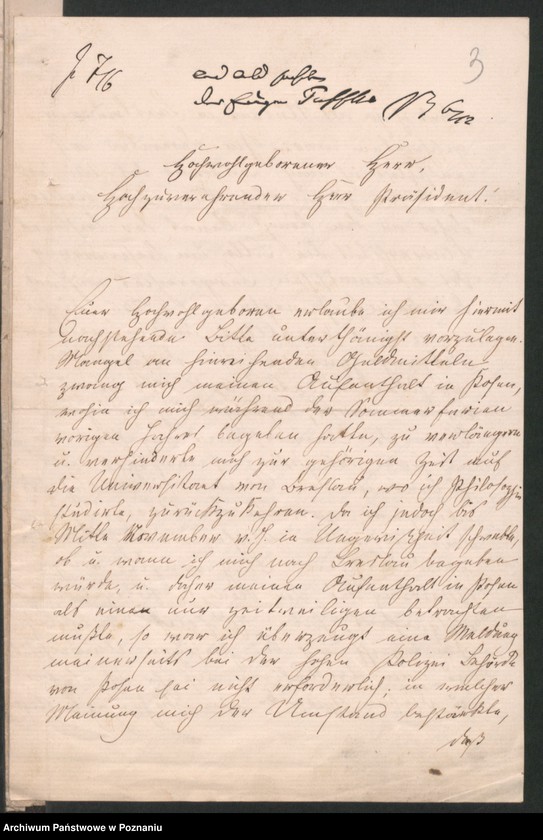 3
Hochwohlgeborener Herr,
Hochzuverehrender Herr Präsident!
Euer Hochwohlgeboren erlaube ich mir hiermit
nachstehende Bitte unterthänigst vorzulegen.
Mangel an hinreichenden Geldmitteln
zwang mich meinen Aufenthalt in Posen,
wohin ich mich während der Sommerferien
vorigen Jahres begeben hatte, zu verlängern
u. verhinderte mich zur gehörigen Zeit auf
die Universitaet von Breslau, wo ich Philosophie
studirte, zurückzukehren. Da ich jedoch bis
Mitte November v. J. in Ungewißheit schwebte,
ob u. wann ich mich nach Breslau begeben
würde, u. daher meinen Aufenthalt in Posen
als einen nur zeitweiligen betrachten
mußte, so war ich überzeugt eine Meldung
meinerseits bei der hohen Polizei Behörde
von Posen sei nicht erforderlich; in welcher
Meinung mich der Umstand bestärkte,
daß
Archiwum Państwowe w Poznaniu